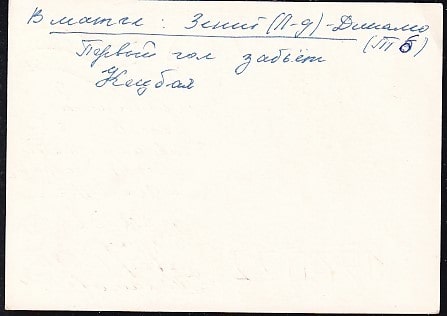 В матче: Зенит (Л-д) - Динамо
(Тб)
Первый гол забьёт
Кецбая